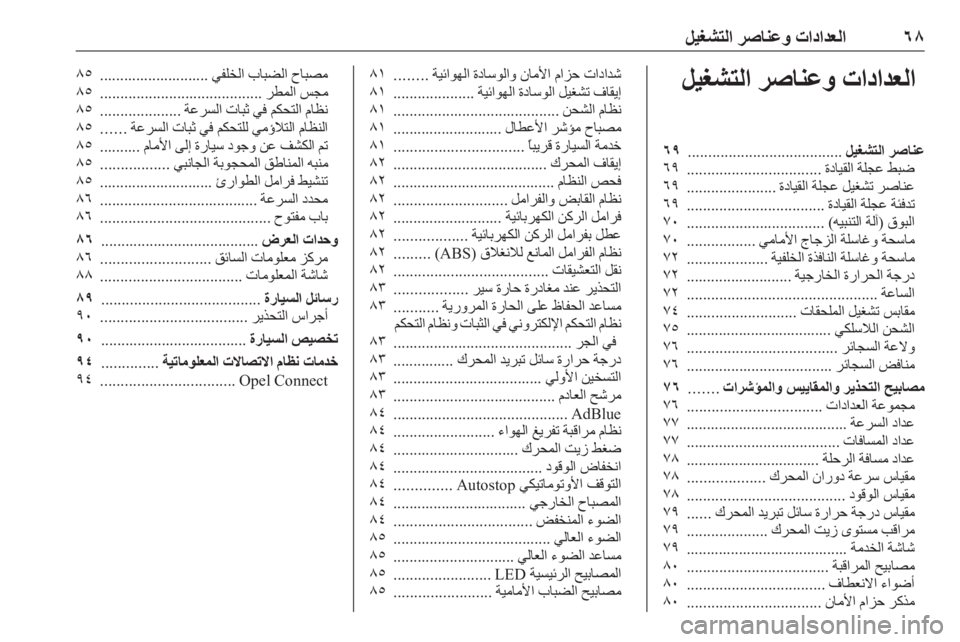 ٦٨ العدادات وعناصر التشغيل
العدادات وعناصر التشغيل
عناصر التشغيل ...................................... ٦٩
ضبط عجلة القيادة ................................. ٦٩
عناصر تشغيل عجلة القيادة ...................... ٦٩
تدفئة عجلة القيادة .................................. ٦٩
البوق (آلة التنبيه) .................................. ٧٠
ماسحة وغاسلة الزجاج الأمامي ................. ٧٠
ماسحة وغاسلة النافذة الخلفية .................... ٧٢
درجة الحرارة الخارجية .......................... ٧٢
الساعة ............................................... ٧٢
مقابس تشغيل الملحقات ........................... ٧٤
الشحن اللاسلكي .................................... ٧٥
ولاعة السجائر ..................................... ٧٦
منافض السجائر .................................... ٧٦
مصابيح التحذير والمقاييس والمؤشرات ....... ٧٦
مجموعة العدادات ................................. ٧٦
عداد السرعة ....................................... ٧٧
عداد المسافات ..................................... ٧٧
عداد مسافة الرحلة ................................ ٧٨
مقياس سرعة دوران المحرك ................... ٧٨
مقياس الوقود ....................................... ٧٨
مقياس درجة حرارة سائل تبريد المحرك ...... ٧٩
مراقب مستوى زيت المحرك .................... ٧٩
شاشة الخدمة ....................................... ٧٩
مصابيح المراقبة ................................... ٨٠
أضواء الانعطاف .................................. ٨٠
مذكر حزام الأمان ................................. ٨٠
شدادات حزام الأمان والوسادة الهوائية ........ ٨١
إيقاف تشغيل الوسادة الهوائية .................... ٨١
نظام الشحن ......................................... ٨١
مصباح مؤشر الأعطال ........................... ٨١
خدمة السيارة قريباً ................................ ٨١
إيقاف المحرك ...................................... ٨٢
فحص النظام ........................................ ٨٢
نظام القابض والفرامل ............................ ٨٢
فرامل الركن الكهربائية ........................... ٨٢
عطل بفرامل الركن الكهربائية .................. ٨٢
نظام الفرامل المانع للانغلاق (ABS) ......... ٨٢
نقل التعشيقات ...................................... ٨٢
التحذير عند مغادرة حارة سير .................. ٨٣
مساعد الحفاظ على الحارة المرورية ........... ٨٣
نظام التحكم الإلكتروني في الثبات ونظام التحكم
في الجر ............................................ ٨٣
درجة حرارة سائل تبريد المحرك ............... ٨٣
التسخين الأولي .................................... ٨٣
مرشح العادم ........................................ ٨٣
AdBlue ........................................... ٨٤
نظام مراقبة تفريغ الهواء ......................... ٨٤
ضغط زيت المحرك ............................... ٨٤
انخفاض الوقود ..................................... ٨٤
التوقف الأوتوماتيكي Autostop .............. ٨٤
المصباح الخارجي ................................ ٨٤
الضوء المنخفض .................................. ٨٤
الضوء العالي ....................................... ٨٥
مساعد الضوء العالي .............................. ٨٥
المصابيح الرئيسية LED ........................ ٨٥
مصابيح الضباب الأمامية ........................ ٨٥
مصباح الضباب الخلفي ........................... ٨٥
مجس المطر ........................................ ٨٥
نظام التحكم في ثبات السرعة .................... ٨٥
النظام التلاؤمي للتحكم في ثبات السرعة ...... ٨٥
تم الكشف عن وجود سيارة إلى الأمام .......... ٨٥
منبه المناطق المحجوبة الجانبي ................. ٨٥
تنشيط فرامل الطوارئ ............................ ٨٥
محدد السرعة ....................................... ٨٦
باب مفتوح .......................................... ٨٦
وحدات العرض ...................................... ٨٦
مركز معلومات السائق ........................... ٨٦
شاشة المعلومات ................................... ٨٨
رسائل السيارة ....................................... ٨٩
أجراس التحذير .................................... ٩٠
تخصيص السيارة ................................... ٩٠
خدمات نظام الاتصالات المعلوماتية .............. ٩٤
Opel Connect ................................. ٩٤
carmanualsonline.info